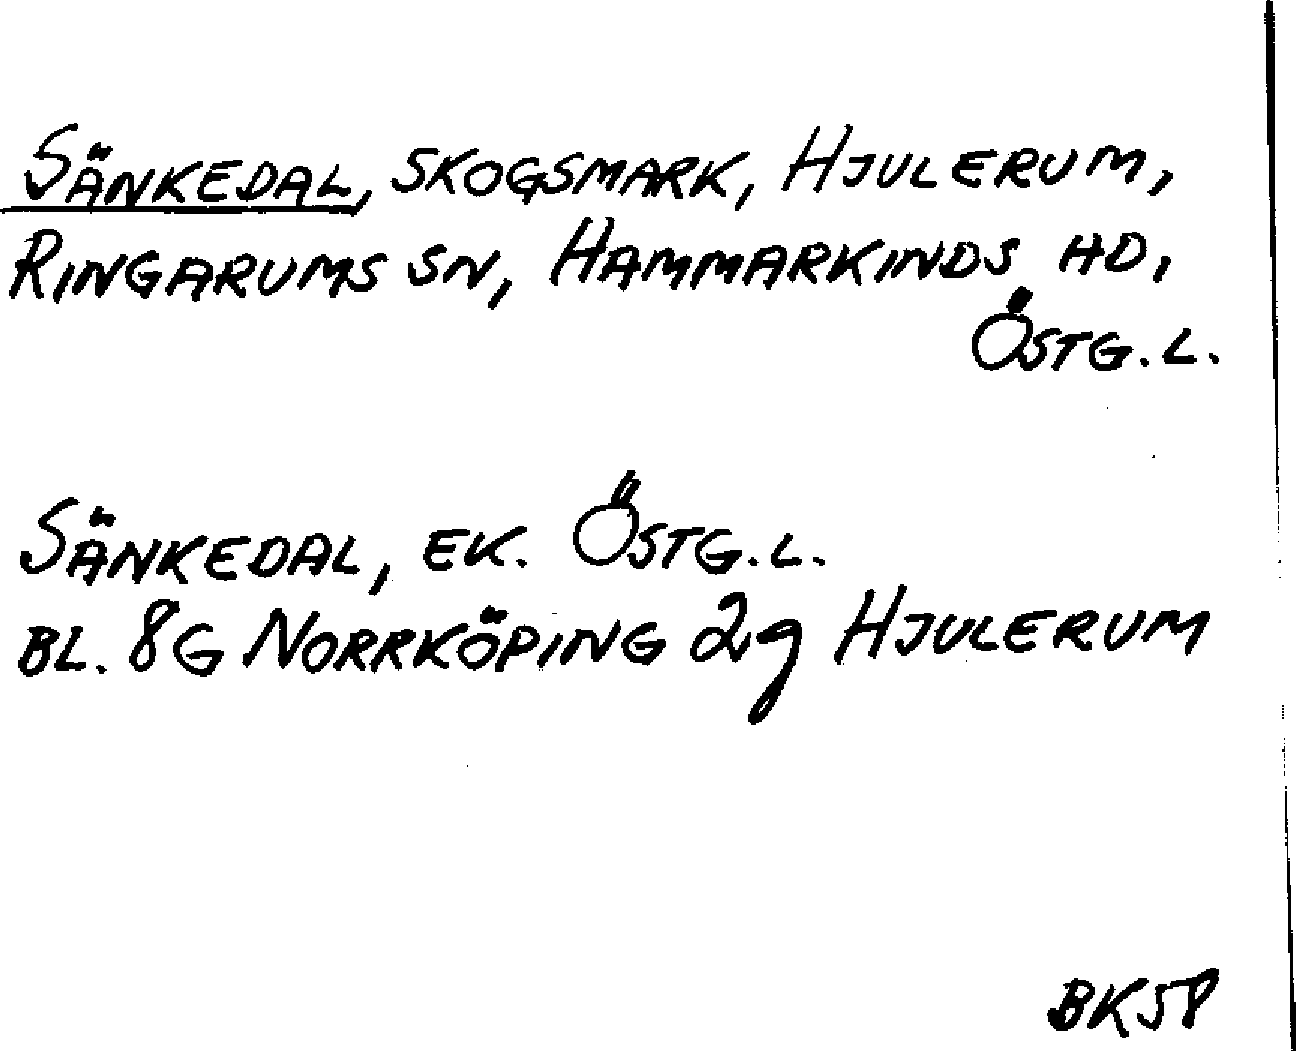 SÄNKEDAL, SKOGSMARK, HJULERUM,
RINGARUMS SN, HAMMARKINDS HD,
ÖSTG.L.
SÄNKEDAL, EK. ÖSTG.L.
BL. 8G NORRKÖPING 2g HJULERUM